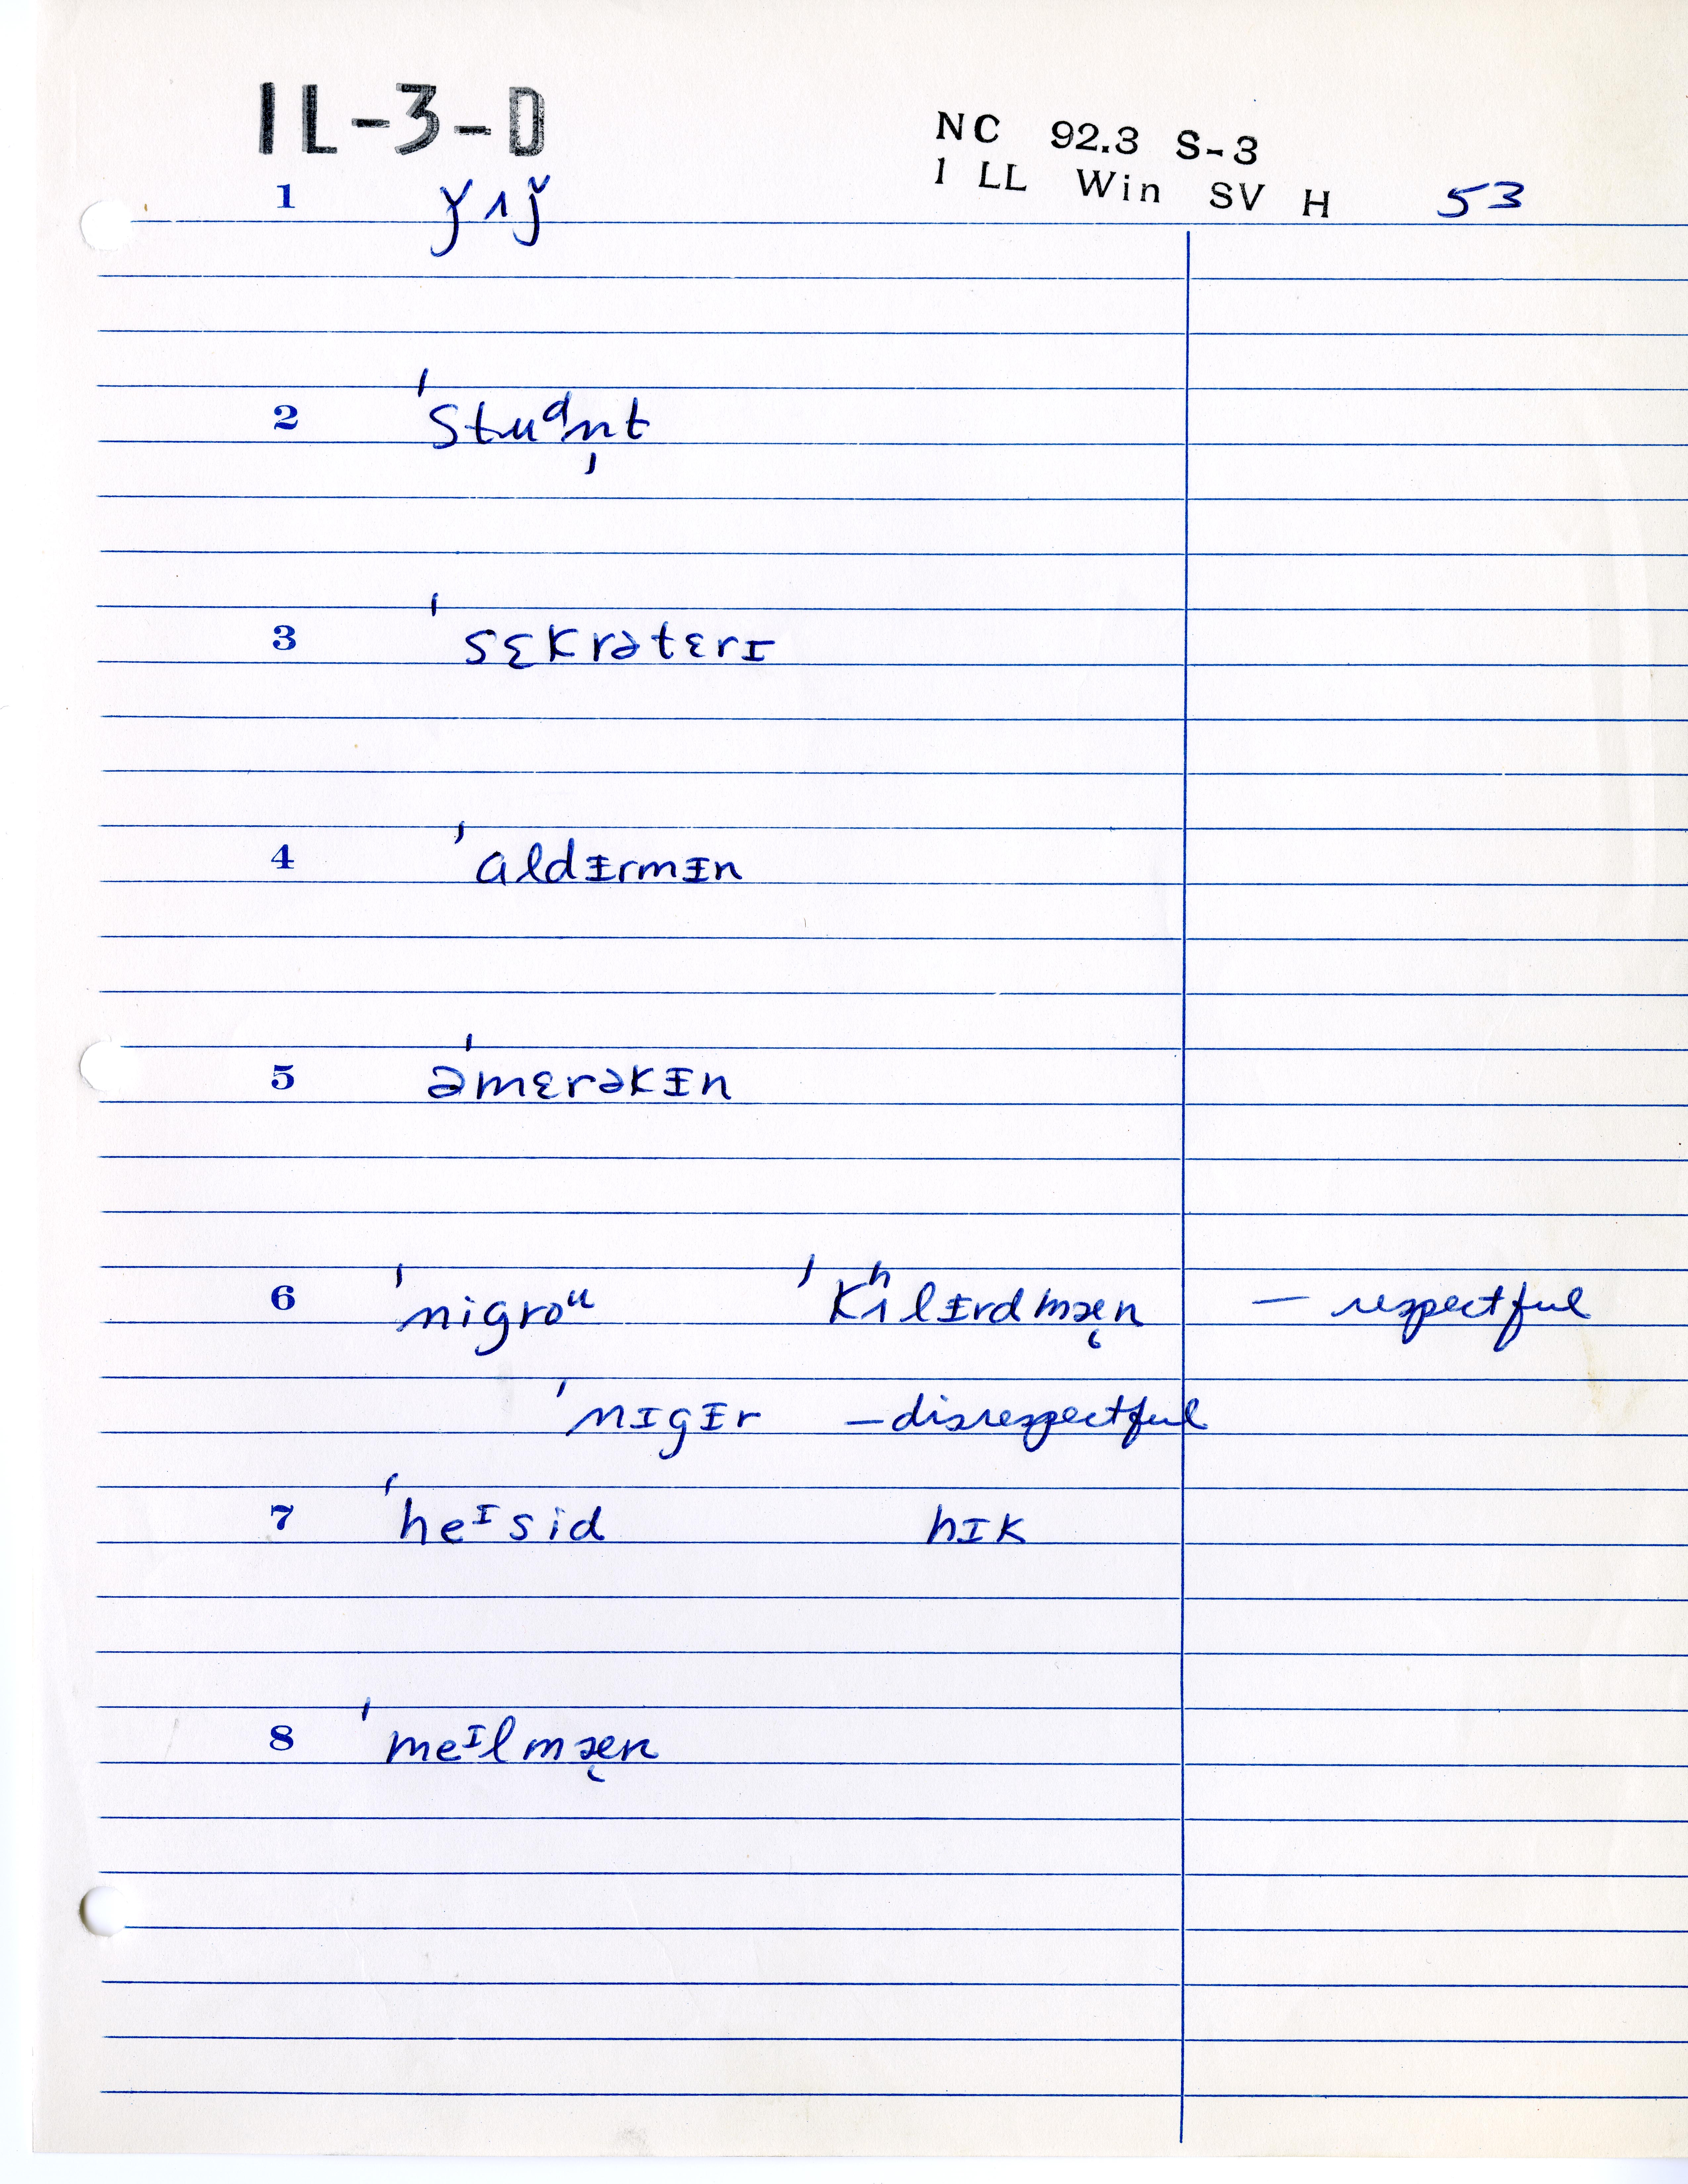 IL-3-D
NC 92.3 S-3
1 LL Win SV H 53
1 ǰʌǰ
2 ˈstuᵊn̩t
3 ˈsɛkrətɛrɪ
4 ˈaldɨrmɨn
5 əˈmɛrəkɨn
6 ˈnigroᵘ ˈkʰʌlɨrdmæn — respectful
ˈnɪgɨr — disrespectful
7 ˈheᴵsid hɪk
8 ˈmeᴵlmæn